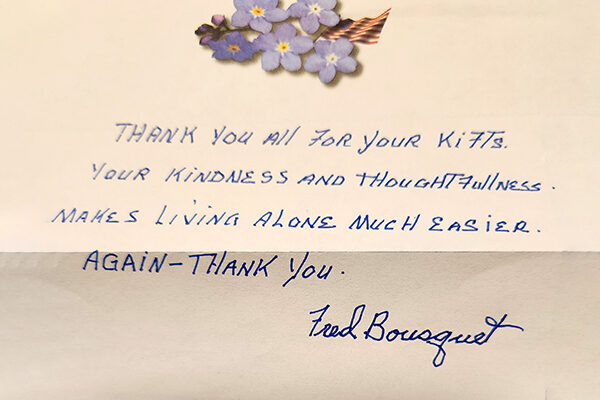 THANK YOU All FOR YOUR KiFTS.
YOUR KINDNESS AND THOUGHTFullNESS.
MAKES LiVING ALONE MUCH EASIER.
AGAiN-THANK YOU.
Fred Bousquet